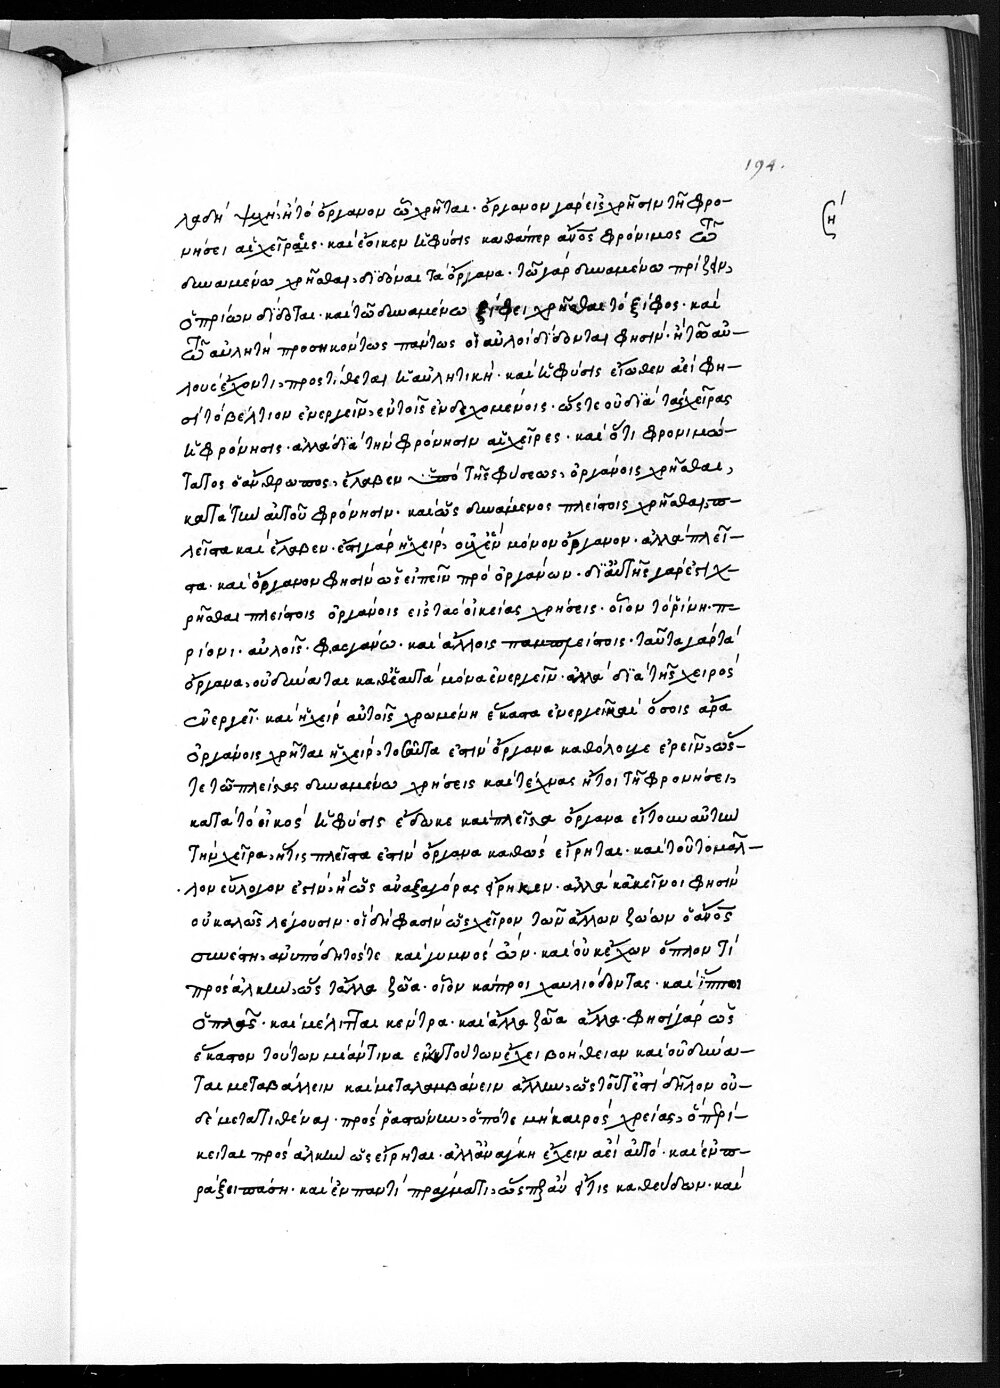 194.
λαδὴ ψυχή, ἡ τὸ ὄργανον ᾧ χρῆται· ὄργανον γάρ εἰς χρῆσιν τῇ φρο-
νήσει αἱ χεῖρες· καὶ ἔοικεν ἡ φύσις καθάπερ ἄνος φρόνιμος τῷ
δυναμένω χρῆσθαι, διδόναι τὰ ὄργανα· τῶ γὰρ δυναμένω πρίζειν,
ὁ πρίων δίδοται· καὶ τῶ δυναμένω ξίφει χρῆσθαι τὸ ξίφος· καὶ
τῷ αὐλητῆ προσηκόντως πάντως οἱ αὐλοὶ δίδονται φησίν· ἢ τῶ αὐ-
λοὺς ἔχοντι, προστίθεται ἡ αὐλητική· καὶ ἡ φύσις εἴωθεν ἀεί φη-
σι τὸ βέλτιον ἐνεργεῖν, ἐν τοῖς ἐνδεχομένοις· ὥστε οὐ διὰ τὰς χεῖρας
ἡ φρόνησις· ἀλλὰ διὰ τὴν φρόνησιν αἱ χεῖρες· καὶ ὅτι φρονιμώ-
τατος ὁ ἄνθρωπος, ἔλαβεν ὑπὸ τῆς φύσεως, ὀργάνοις χρῆσθαι,
κατὰ τὴν αὐτοῦ φρόνησιν· καὶ ὡς δυνάμενος πλείστοις χρῆσθαι, π-
λεῖστα καὶ ἔλαβεν· ἔστι γὰρ ἡ χεὶρ, οὐχ ἓν μόνον ὄργανον· ἀλλὰ πλεῖ-
στα· καὶ ὄργανον φησὶν ὡς εἰπεῖν πρὸ ὀργάνων· δι αὐτῆς γὰρ ἔστι χ-
ρῆσθαι πλείστοις ὀργάνοις εἰς τὰς οἰκείας χρήσεις· οἷον τὸ ῥίνη· π-
ρίονι· αὐλοῖς· φασγάνω· καὶ ἄλλοις πλείστοις· ταῦτα γὰρ τὰ
ὄργανα, οὐ δύναται καθ' ἑαυτὰ μόνα ἐνεργεῖν· ἀλλὰ διὰ τῆς χειρὸς
ἐνεργεῖ· καὶ ἡ χεὶρ αὐτοῖς χρωμένη ἕκαστα ἐνεργεῖ καὶ ὅσοις ἄρα
ὀργάνοις χρῆται ἡ χεὶρ, τοσαῦτα ἐστὶν ὄργανα καθόλου γε ἐρεῖν, ὥσ-
τε τῶ πλείστας δυναμένω χρήσεις καὶ τέχνας ἤτοι τῇ φρονήσει,
κατὰ τὸ εἰκὸς ἡ φύσις ἔδωκε καὶ πλεῖστα ὄργανα εἴτουν αὐτὴν
τὴν χεῖρα, ἥτις πλεῖστα ἐστὶν ὄργανα καθὼς εἴρηται· καὶ τοῦτο μᾶλ-
λον εὔλογον ἐστὶν, ἢ ὡς ἀναξαγόρας εἴρηκεν· ἀλλὰ κἀκεῖνοι φησὶν
οὐ καλῶς λέγουσιν· οἱ δή φασὶν ὡς χεῖρον τῶν ἄλλων ζώων ὁ ἄνος
συνέστη, ἀνυπόδητός τε καὶ γυμνὸς ὤν· καὶ οὐκ ἔχων ὅπλον τί
πρὸς ἀλκὴν, ὡς τἆλλα ζῶα· οἷον κάπροι χαυλιόδοντας· καὶ ἵπποι
ὁπλὰς· καὶ μέλιτται κέντρα· καὶ ἄλλα ζῶα ἄλλα· φησὶ γὰρ ὡς
ἕκαστον τούτων μίαν τινα ἐκ τούτων ἔχει βοήθειαν καὶ οὐ δύνα-
ται μεταβάλλειν καὶ μεταλαμβάνειν ἄλλην, ὡς τοῦτ' ἔστι δῆλον οὐ-
δὲ μετατιθέναι· πρὸς ῥαστώνην, ὁπότε μὴ καιρὸς χρείας, ὅπερ
κεῖται πρὸς ἀλκὴν ὡς εἴρηται· ἀλλ' ἀνάγκη ἔχειν ἀεὶ αὐτό· καὶ ἐν π-
ράξει πάση· καὶ ἐν παντὶ πράγματι, ὥσπερ ἂν εἴ τις καθεύδων· καὶ